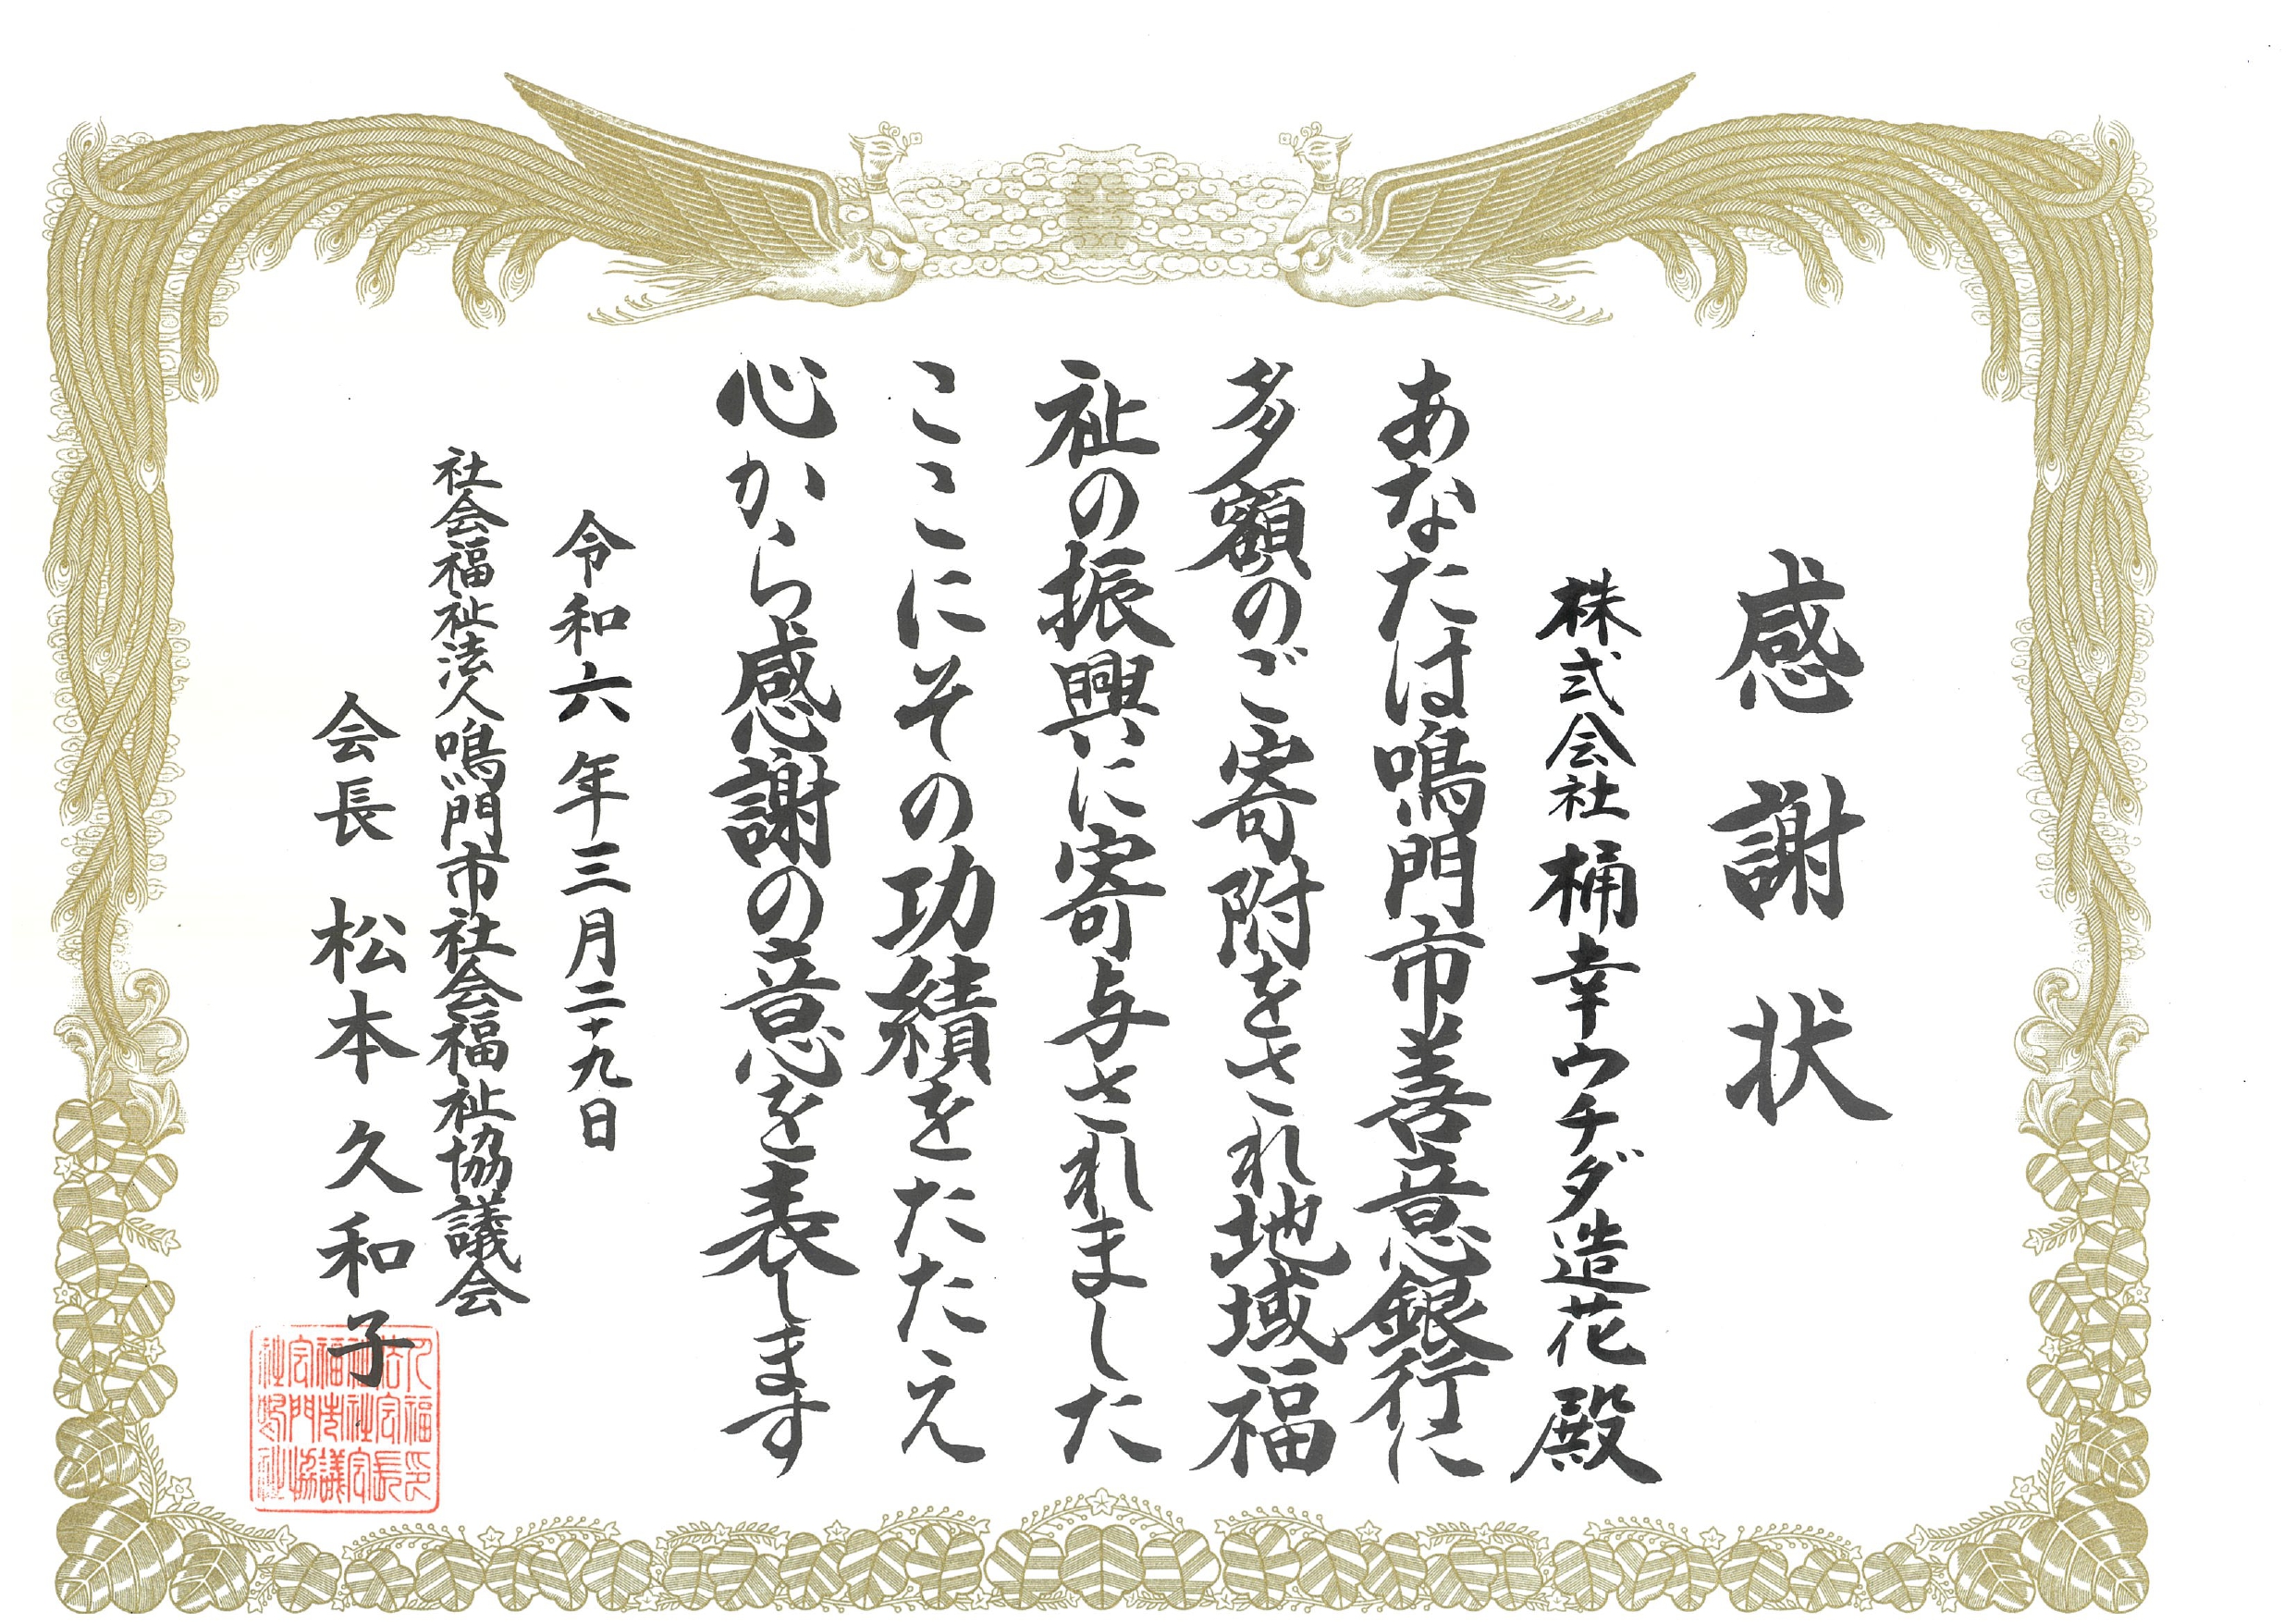 感謝状
株式会社 桶幸ウチダ造花 殿
あなたは鳴門市善意銀行に
多額のご寄附をされ地域福
祉の振興に寄与されました
ここにその功績をたたえ
心から感謝の意を表します
令和六年三月二十九日
社会福祉法人鳴門市社会福祉協議会
会長 松本久和子